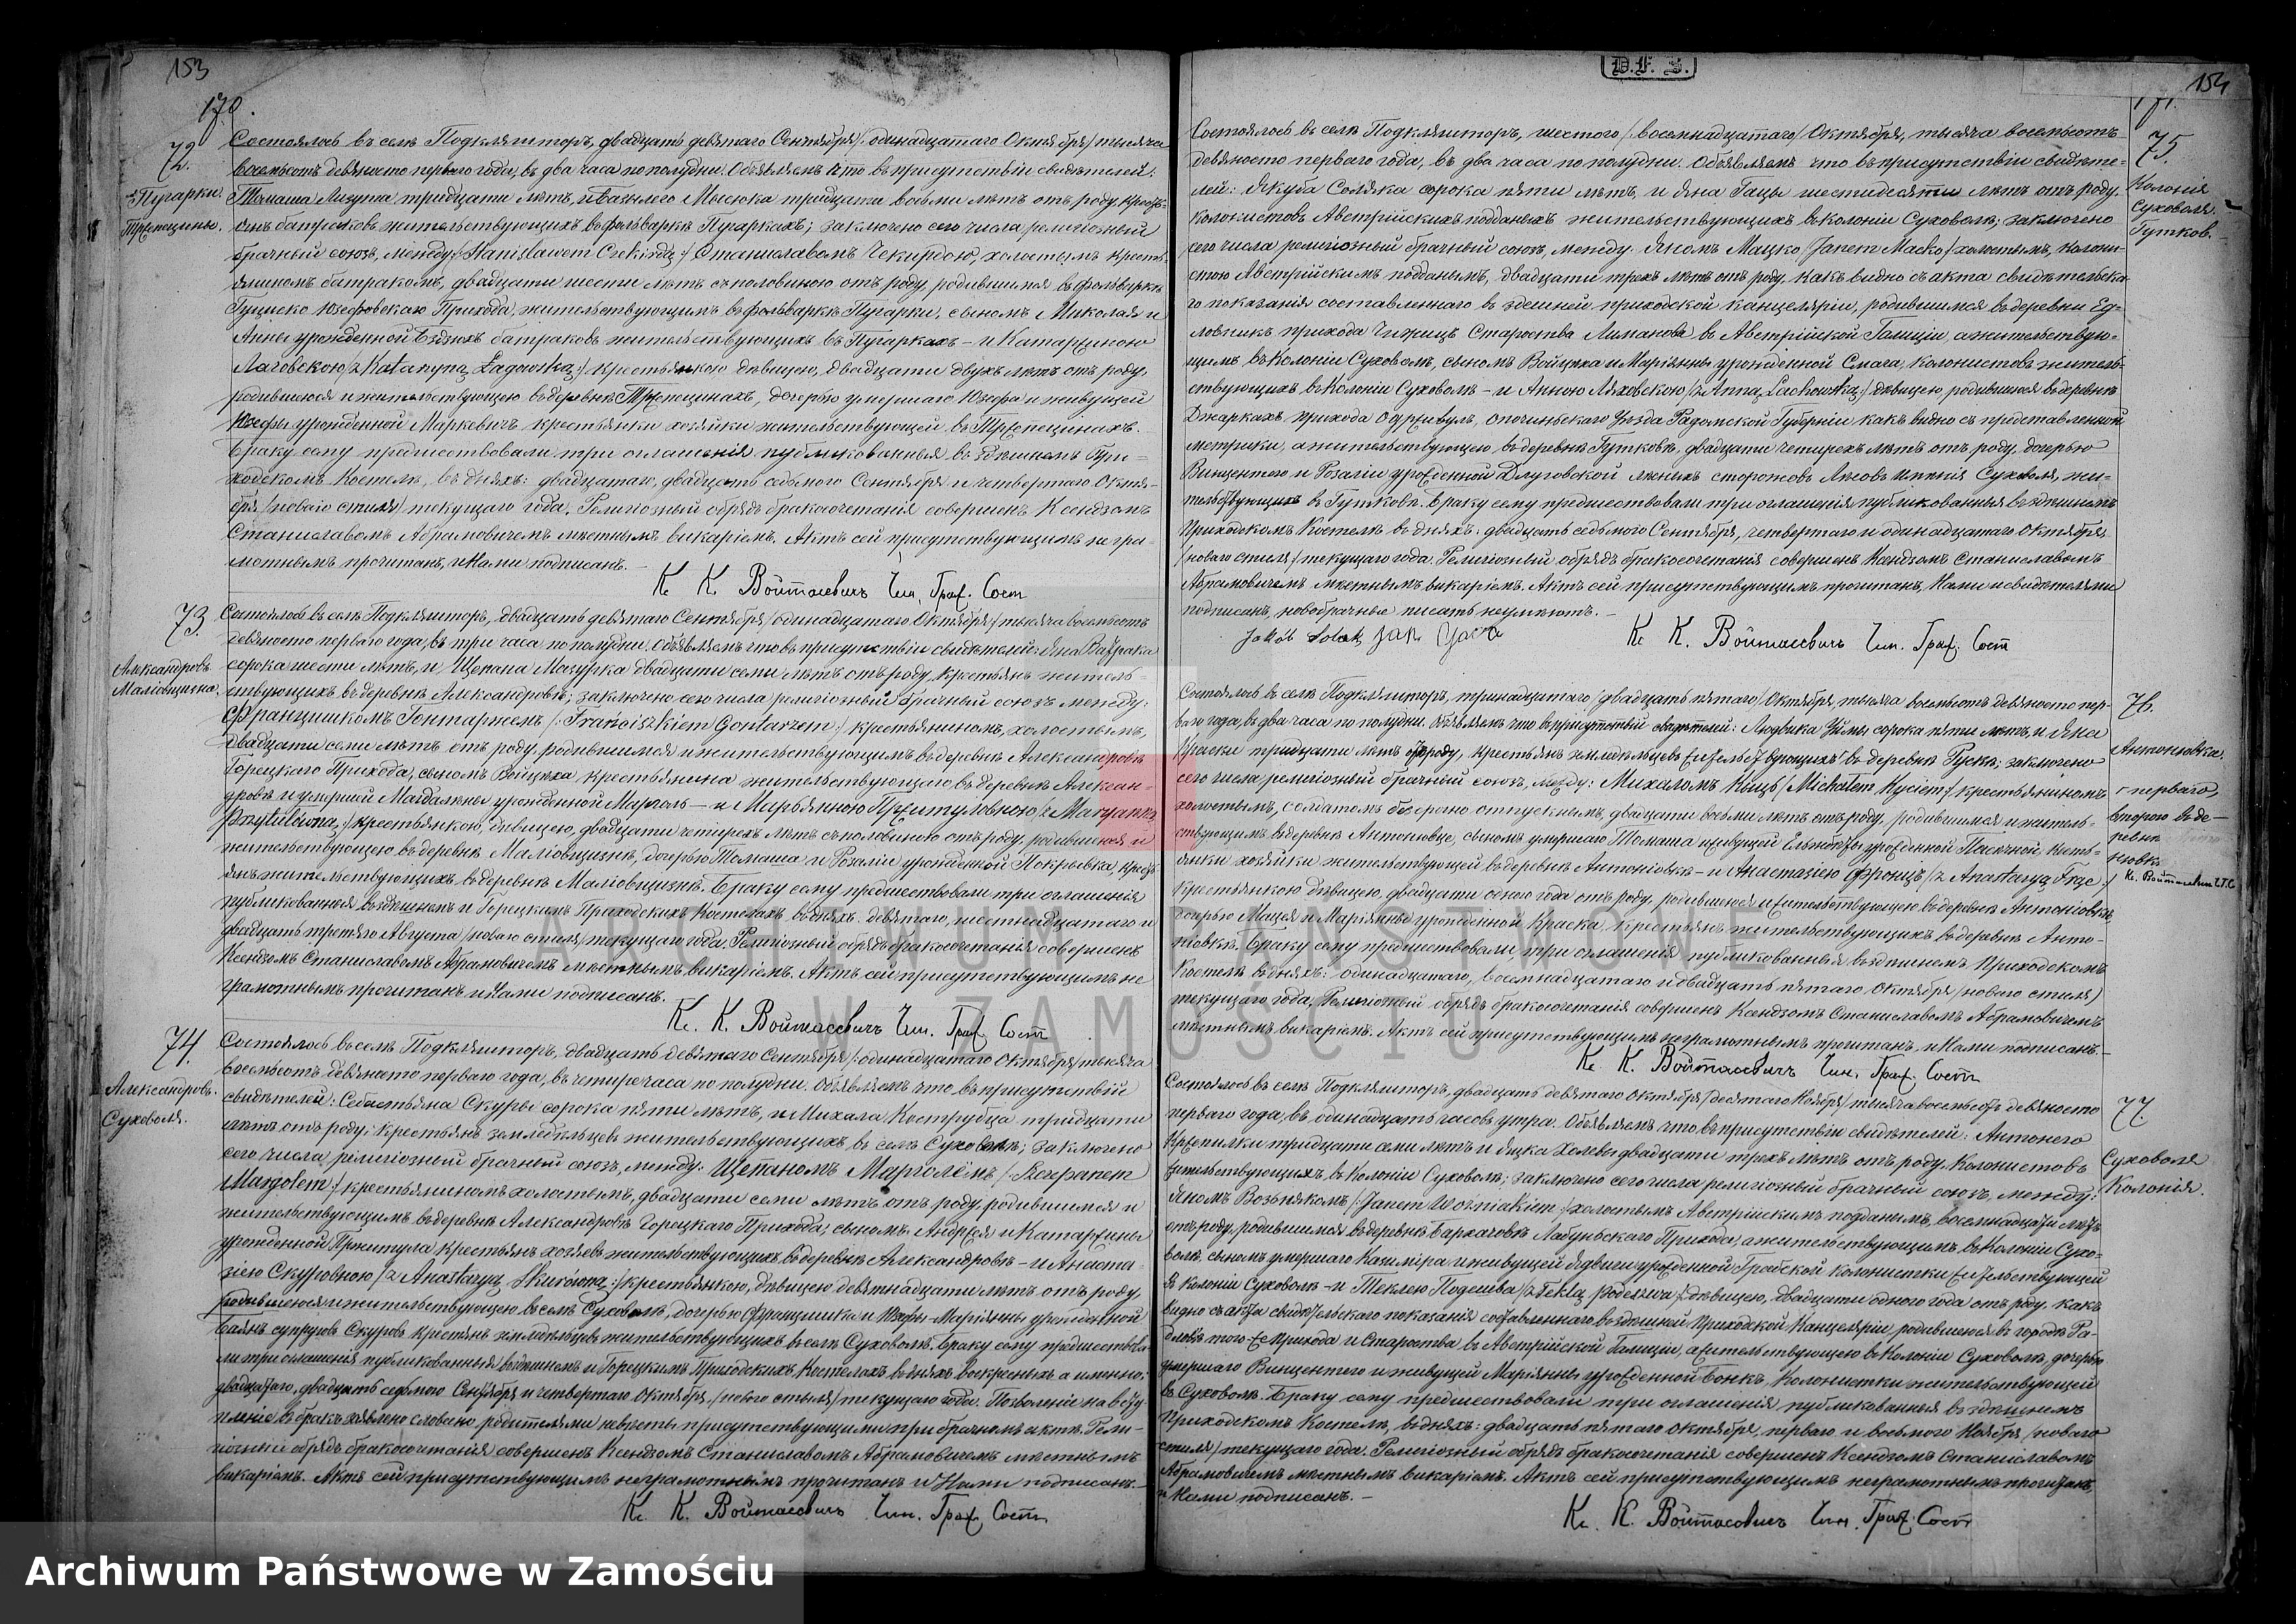 153
170.
72.
Пугарки.
Тржепецины.
Состоялось въ селѣ Подкляшторъ, двадцать девятаго Сентября /:одинадцатаго Октября/ тысяча
восемьсотъ девяносто перваго года, въ два часа по полудни. Объявляемъ что въ присутствіи свидѣтелей:
Томаша тридцати лѣтъ, и тридцати восьми лѣтъ отъ роду,
жительствующихъ въ фольваркѣ Пугаркахъ; заключено сего числа религіозный
брачный союзъ, между: /Stanisławem / Станиславомъ холостымъ
батракомъ, двадцати шести лѣтъ съ половиною отъ роду, родившимся въ фольваркѣ
Прихода, жительствующимъ въ фольваркѣ Пугарки, сыномъ Николая и
Анны урожденной батраковъ жительствующихъ въ Пугаркахъ – и Катаржиною
Лаговскою /z Katarzyną Łagowską:/ крестьянкою дѣвицею, двадцати двухъ лѣтъ отъ роду,
родившеюся и жительствующею въ деревнѣ Тржепецинахъ, дочерью умершаго Юзефа и живущей
Юзефы урожденной Маркевичъ крестьянки хозяйки жительствующей въ Тржепецинахъ.
Браку сему предшествовали три оглашенія публикованныя въ здѣшнемъ При-
ходскомъ Костелѣ, въ дняхъ: двадцатаго, двадцать седьмого Сентября и четвертаго Октя-
бря /новаго стиля/ текущаго года. Религіозный обрядъ бракосочетанія совершенъ Ксендзомъ
Станиславомъ Абрамовичемъ мѣстнымъ викаріемъ. Актъ сей присутствующимъ негра-
мотнымъ прочитанъ, и Нами подписанъ. –
Кс. К. Войтасевичъ Чин. Граж. Сост.
73.
Александровъ.
Маліовщизна.
Состоялось въ селѣ Подкляшторъ, двадцать девятаго Сентября /одинадцатаго Октября:/ тысяча восемьсотъ
девяносто перваго года, въ три часа по полудни. Объявляемъ что въ присутствіи свидѣтелей: Яна
сорока шести лѣтъ, и Щепана Мазурка двадцати семи лѣтъ отъ роду, крестьянъ житель-
ствующихъ въ деревнѣ Александровѣ; заключено сего числа религіозный брачный союзъ между:
Францишкомъ Гонтаржемъ /:Franciszkiem Gontarzem:/ крестьяниномъ, холостымъ,
двадцати семи лѣтъ отъ роду, родившимся и жительствующимъ въ деревнѣ Александровѣ
Горецкаго Прихода, сыномъ Войцѣха крестьянина жительствующаго въ деревнѣ Алексан-
дровѣ и умершей Магдалены урожденной Марголь – и Марьянною Пржитуловною /z Maryanną
Przytulówną:/ крестьянкою, дѣвицею, двадцати четырехъ лѣтъ съ половиною отъ роду, родившеюся и
жительствующею въ деревнѣ Маліовщизнѣ, дочерью Томаша и Розаліи урожденной Покрывка, кресть-
янъ жительствующихъ въ деревнѣ Маліовщизнѣ. Браку сему предшествовали три оглашенія
публикованныя въ здѣшнемъ и Горецкимъ Приходскихъ Костелахъ въ дняхъ: девятаго, шестнадцатаго и
двадцать третяго Августа /новаго стиля/ текущаго года. Религіозный обрядъ бракосочетанія совершенъ
Ксендзомъ Станиславомъ Абрамовичемъ мѣстнымъ викаріемъ. Актъ сей присутствующимъ не
грамотнымъ прочитанъ и Нами подписанъ.
Кс. К. Войтасевичъ Чин. Граж. Сост.
74.
Александровъ.
Суховоля.
Состоялось въ селѣ Подкляшторъ, двадцать девятаго Сентября /:одинадцатаго Октября/ тысяча
восемьсотъ девяносто перваго года, въ четыре часа по полудни. Объявляемъ что, въ присутствіи
свидѣтелей: Себастьяна Скуры сорока пяти лѣтъ, и Михала Кострубца тридцати
лѣтъ отъ роду; крестьянъ земледѣльцевъ жительствующихъ въ селѣ Суховолѣ; заключено
сего числа религіозный брачный союзъ, между: Щепаномъ Марголёмъ /:Szczepanem
Margolem:/ крестьяниномъ холостымъ, двадцати семи лѣтъ отъ роду, родившимся и
жительствующимъ въ деревнѣ Александровѣ Горецкаго Прихода; сыномъ Андрея и Катаржины
урожденной Пржитула крестьянъ хозяевъ жительствующихъ въ деревнѣ Александровѣ – и Анаста-
зіею Скуровною /z Anastazyą Skurówną:/ крестьянкою, дѣвицею девятнадцати лѣтъ отъ роду,
родившеюся и жительствующею въ селѣ Суховолѣ, дочерью Францишка и Юзефы-Маріянны урожденной
Баянъ супруговъ Скуровъ крестянъ земледѣльцевъ жительствующихъ въ селѣ Суховолѣ. Браку сему предшествова-
ли три оглашенія публикованныя въ здѣшнемъ и Горецкимъ Приходскихъ Костелахъ въ дняхъ Воскресныхъ а именно:
двадцатаго, двадцать седьмого Сентября и четвертаго Октября, /новаго стиля/ текущаго года. Позволеніе на всту-
пленіе въ бракъ изявлено словесно родителями невесты присутствующими при брачномъ актѣ. Рели-
гіозный обрядъ бракосочетанія совершенъ Ксендзомъ Станиславомъ Абрамовичемъ мѣстнымъ
викаріемъ. Актъ сей присутствующимъ неграмотнымъ прочитанъ и Нами подписанъ. –
Кс. К. Войтасевичъ Чин. Граж. Сост.
D.F. S.
154
171.
75.
Колонія
Суховоля.
Гутковъ.
Состоялось въ селѣ Подкляшторъ, шестого /:восемнадцатаго/ Октября, тысяча восемьсотъ
девяносто перваго года, въ два часа по полудни. Объявляемъ что въ присутствіи свидѣте-
лей: Якуба Соляка сорока пяти лѣтъ, и Яна Гацы шестидесяти лѣтъ отъ роду,
колонистовъ Австрійскихъ подданыхъ жительствующихъ въ колоніи Суховоля; заключено
сего числа религіозный брачный союзъ, между: Яномъ Мацко /Janem Macko/ холостымъ, колони-
стою Австрійскимъ подданымъ, двадцати трехъ лѣтъ отъ роду, какъ видно съ акта свидѣтельска-
го показанія составленнаго въ здешней приходской канцеляріи, родившимся въ деревни Ед-
ловникъ прихода Чижицъ Староства Лиманова въ Австрійской Галиціи а жительствую-
щимъ въ Колоніи Суховолѣ, сыномъ Войцѣха и Маріянны урожденной Смага, колонистовъ житель-
ствующихъ въ Колоніи Суховолѣ – и Анною Ляховскою /z Anną Lachowską/ дѣвицею, родившеюся въ деревнѣ
Джаркахъ, прихода Одрживулъ, Опочинскаго уѣзда Радомской Губерніи какъ видно съ представленной
метрики, а жительствующею въ деревнѣ Гутковѣ, двадцати четырехъ лѣтъ отъ роду, дочерью
Винцентего и Розаліи урожденной Длуговской сторожовъ имѣнія Суховоля, жи-
тельствующихъ въ Гутковѣ. Браку сему предшествовали три оглашенія публикованныя въ здѣшнемъ
Приходскомъ Костелѣ въ дняхъ: двадцать седьмого Сентября, четвертаго и одинадцатаго Октября
/новаго стиля:/ текущаго года. Религіозный обрядъ бракосочетанія совершенъ Ксендзомъ Станиславомъ
Абрамовичемъ мѣстнымъ викаріемъ. Актъ сей присутствующимъ прочитанъ, Нами и свидѣтелями
подписанъ, новобрачные писать неумѣютъ. –
Jakób Solak Jan Gaca
Кс. К. Войтасевичъ Чин. Граж. Сост.
76.
Антоніовка.
перваго,
второго въ де-
ревнѣ
Кс. Войтасевичъ Ч.Г.С.
Состоялось въ селѣ Подкляшторъ, тринадцатаго /двадцать пятаго/ Октября, тысяча восемьсотъ девяносто пер-
ваго года, въ два часа по полудни. Объявляемъ что въ присутствіи свидѣтелей: Людвика Чумы сорока пяти лѣтъ, и Яна
Краски тридцати лѣтъ отъ роду, крестьянъ земледѣльцевъ жительствующихъ въ деревнѣ Гускѣ; заключено
сего числа религіозный брачный союзъ, между: Михаломъ Кыць /Michałem Kyciem:/ крестьяниномъ
холостымъ, солдатомъ безсрочно отпускнымъ, двадцати восьми лѣтъ отъ роду, родившимся и житель-
ствующимъ въ деревнѣ Антоніовце, сыномъ умершаго Томаша и живущей Ельжбѣты урожденной Пасѣчной, кресть-
янки хозяйки жительствующей въ деревнѣ Антоніовкѣ – и Анастазіею Фронцъ /z Anastazyą Frąc:/
крестьянкою дѣвицею, двадцати одного года отъ роду, родившеюся и жительствующею въ деревнѣ Антоніовкѣ,
дочерью Мацея и Маріянны урожденной Краска, крестьянъ жительствующихъ въ деревнѣ Анто-
ніовкѣ. Браку сему предшествовали, три оглашенія публикованныя въ здѣшнемъ Приходскомъ
Костелѣ въ дняхъ: одинадцатаго, восемнадцатаго и двадцать пятаго Октября /новаго стиля/
текущаго года. Религіозный обрядъ бракосочетанія совершенъ Ксендзомъ Станиславомъ Абрамовичемъ
мѣстнымъ викаріемъ. Актъ сей присутствующимъ неграмотнымъ прочитанъ, и Нами подписанъ. –
Кс. К. Войтасевичъ Чин. Граж. Сост.
77.
Суховоля
Колонія.
Состоялось въ селѣ Подкляшторъ, двадцать девятаго Октября /десятаго Ноября/ тысяча восемьсотъ девяносто
перваго года, въ одинадцать часовъ утра. Объявляемъ что въ присутствіи свидѣтелей: Антонего
тридцати семи лѣтъ и двадцати трехъ лѣтъ отъ роду, Колонистовъ
жительствующихъ въ Колоніи Суховолѣ; заключено сего числа религіозный брачный союзъ, между:
Яномъ Возьнякомъ /Janem Woźniakiem:/ холостымъ Австрійскимъ подданымъ, восемнадцати лѣтъ
отъ роду, родившимся въ деревнѣ Бархачовѣ Лабуньскаго Прихода, а жительствующимъ въ Колоніи Сухо-
волѣ, сыномъ умершаго Казиміра и живущей Ядвиги урожденной Грабской колонистки жительствующей
въ Колоніи Суховолѣ – и Теклею /z Teklą / дѣвицею, двадцати одного года отъ роду, какъ
видно съ акта свидѣтельскаго показанія составленнаго въ здѣшней Приходской Канцеляріи родившеюся въ городѣ Ра-
того-же прихода и Староства въ Австрійской Галиціи, а жительствующею въ Колоніи Суховолѣ, дочерью
умершаго Винцентего и живущей Маріянны урожденной Бонкъ, Колонистки жительствующей
въ Суховолѣ. Браку сему предшествовали три оглашенія публикованныя въ здѣшнемъ
Приходскомъ Костелѣ, въ дняхъ: двадцать пятаго Октября, перваго и восьмого Ноября /новаго
стиля/ текущаго года. Религіозный обрядъ бракосочетанія совершенъ Ксендзомъ Станиславомъ
Абрамовичемъ мѣстнымъ викаріемъ. Актъ сей присутствующимъ неграмотнымъ прочитанъ,
и Нами подписанъ. –
Кс. К. Войтасевичъ Чин. Граж. Сост.
ARCHIWUM PAŃSTWOWE
W ZAMOŚCIU
Archiwum Państwowe w Zamościu